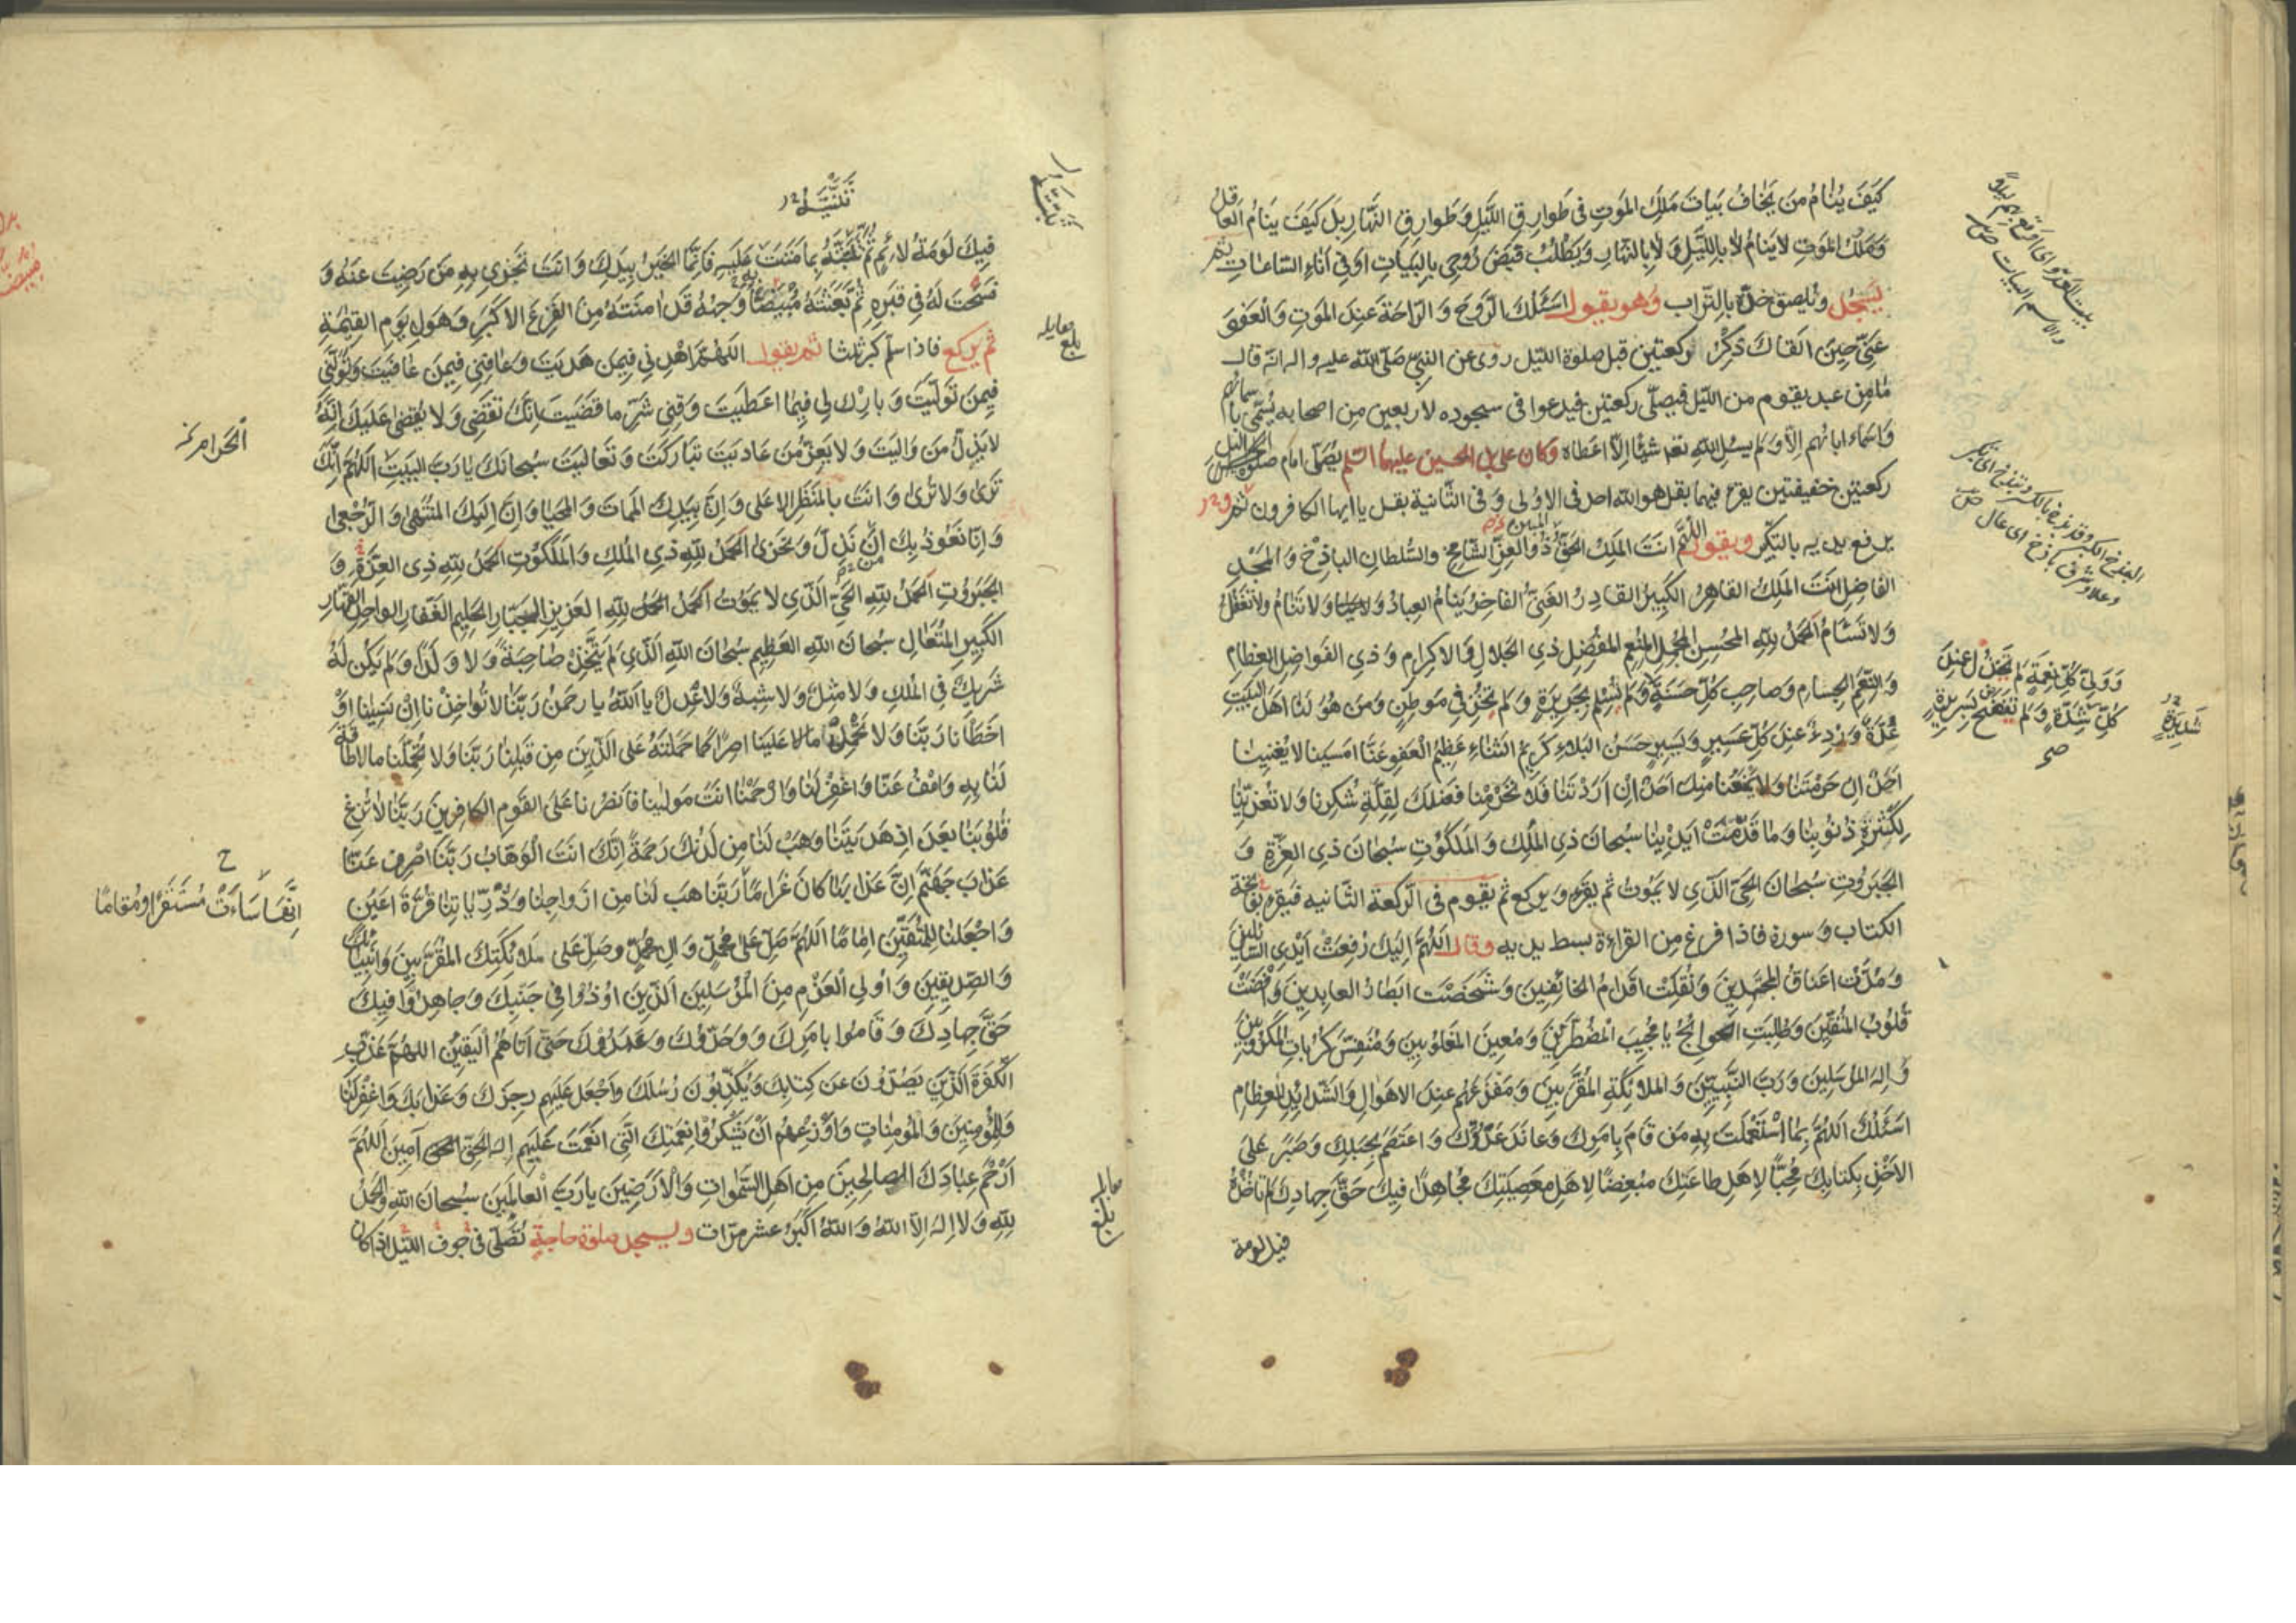 كَيْفَ يَنَامُ مَن يَخَافُ بَيَاتَ مَلَكِ المَوتِ فِى طَوارِقِ اللَّيْلِ وَ طَوارِقِ النَّهَارِ بَل كَيْفَ يَنَامُ العَاقِلُ
وَ مَلَكُ المَوتِ لا يَنامُ لا بِاللَّيْلِ وَ لا بِالنَّهارِ وَ يَطْلُبُ قَبْضَ رُوحِي بِالبَيَاتِ اَو فِي آنَاءِ السَّاعاتِ ثم
يَسْجُد و يُلصِق خدّه بِالتّراب وَهو يقول اَسْئَلُكَ الرَّوْحَ وَ الرّاحَةَ عِندَ المَوتِ وَ الْعَفْوَ
عَنّي حِينَ اَلْقَاكَ ذِكْرُ ركعتين قبل صلوة اللّيل روى عن النبيّ صَلّى الله عليه و اله انّه قال
مَا مِن عبد يقوم من اللّيل فيصلّى ركعتين فيدعوا فى سجوده لاربعين مِن اصحابه يُسَمّى باسمائهم
وَ اسمَاء ابائهم اِلّا وَ لم يسئل الله تعم شيئا اِلّا اعطاه وَ كان علىّ بن الحسين عليهما السّلم يُصَلّى امام صلوة الليل
ركعتين خفيفتين يقرء فيهما بقل هو الله احد فى الاولى وَ فى الثّانية بقل يا ايها الكافرون ثم
يرفع يديه بالتّكبير ويقول اللّهُمَّ اَنتَ المَلِكُ الحَقُّ المبين ذُو العِزِّ الشَّامِخِ والسُّلطانِ الباذِخِ وَ المَجْدِ
الفَاضِلِ اَنتَ المَلِكُ القَاهِرُ الكَبِيرُ القَادِرُ الغَنِىُّ الفَاخِرُ يَنَامُ العِبادُ وَلا تَنَامُ وَلا تَغْفُلُ
وَ لا تَسْئَامُ اَلحَمْدُ للهِ المُحْسِنِ المُجْمِلِ المُنْعِمِ المُفْضِلِ ذِي الجَلالِ وَ الاِكرامِ وَ ذِي الفَواضِلِ العِظامِ
وَ النِّعَمِ الجِسامِ وَ صاحِبِ كُلِّ حَسَنَةٍ وَ لَم يُسْلِم بِجَرِيرَةٍ وَ لَم يُخْزِ فِي مَوطِنٍ وَ مَن هُوَ لَنَا اَهْلَ البَيْتِ
عُدَّةٌ وَ رِدْءٌ عِندَ كُلِّ عَسِيرٍ وَ يَسِيرٍ حَسَنُ البَلاءِ كَرِيمُ الثَّناءِ عَظِيمُ العَفوِ عَنّا اَمسَينا لا يُغنِينا
اَحَدٌ اِن حَرَمْتَنا وَ لا يَمْنَعُنا مِنكَ اَحَدٌ اِن اَرَدْتَنا فَلا تَحْرِمْنا فَضلَكَ لِقِلَّةِ شُكرِنا وَ لا تُعَذِّبْنا
لِكَثْرَةِ ذُنُوبِنا وَ مَا قَدَّمَتْ اَيدِينا سُبحانَ ذِي المُلكِ وَ المَلَكُوتِ سُبحَانَ ذِي العِزَّةِ وَ
الجَبَرُوتِ سُبحانَ الحَىِّ الَّذي لا يَمُوتُ ثم يقرء وَ يركع ثم يقوم فى الرّكعة الثّانيه فيقرء بفاتحة
الكتاب وَ سورة فاذا فرغ مِن القراءة بسط يديه وقال اَللّهُمَّ اِلَيكَ رُفِعَتْ اَيْدِى السَّائِلينَ
وَ مُدَّتْ اعنَاقُ المُجْتَهِدِينَ وَ نُقِلَتْ اَقدامُ الخائِفِينَ وَ شَخَصَت اَبْصارُ العابِدِينَ وَ اَفْضَتْ
قُلُوبُ المُتَّقِينَ وَ طُلِبَتِ الحَوائِجُ يا مُجِيبَ المُضْطَرّينَ وَ مُعِينَ المَغلُوبِينَ وَ مُنَفِّسَ كُرُباتِ المَكْرُوبِينَ
وَ اِلهَ المُرسَلِينَ وَ رَبَّ النَّبِيّينَ وَ المَلائِكَةِ المُقَرَّبِينَ وَ مَفزَعَهُم عِندَ الاَهوالِ وَ الشَّدائِدِ العِظامِ
اَسئَلُكَ اَللّهُمَّ بِمَا اسْتَعْمَلْتَ بِهِ مَن قَامَ بِاَمرِكَ وَ عانَدَ عَدُوَّكَ وَ اعتَصَمَ بِحَبلِكَ وَ صَبَرَ عَلَى
الاَخْذِ بِكِتابِكَ مُحِبًّا لاَهلِ طاعَتِكَ مُبْغِضًا لاَهلِ مَعصِيَتِكَ مُجَاهِدًا فِيكَ حَقَّ جِهادِكَ لم تاخُذْهُ
فيك لومة
وَ وَلِيَّ كُلِّ نِعْمَةٍ لَم يَخْذُل عِندَ
كُلِّ شِدَّةٍ وَ لَم يَفْضَح بِسَرِيرَةٍ
صح
شَدِيدَةٍ
فِيكَ لَومَةُ لائِمٍ ثُمَّ بِما مَنَنتَ عَلَيهِ فَاِنَّمَا الخَيرُ بِيَدِكَ وَ اَنتَ تَجْزِي بِهِ مَن رَضِيتَ عَنهُ وَ
فَسَحْتَ لَهُ فِى قَبْرِهِ ثُمَّ بَعَثْتَهُ مُبْيَضًّا وَجْهُهُ قَد امَنْتَهُ مِنَ الفَزَعِ الاَكبَرِ وَ هَولِ يَومِ القِيمَةِ
ثم يركع فاذا سلّم كبّر ثلثا ثم يقول اَللّهُمَّ اهْدِنِي فِيمَن هَدَيتَ وَ عَافِنِي فِيمَن عَافَيتَ وَ تَوَلَّنِي
فِيمَن تَوَلَّيتَ وَ بارِك لِي فِيمَا اَعطَيتَ وَ قِنِي شَرَّ ما قَضَيتَ اِنَّكَ تَقْضِى وَ لا يُقضى عَلَيكَ اِنَّهُ
لا يَذِلُّ مَن وَالَيتَ وَ لا يَعِزُّ مَن عَادَيتَ تَبَارَكتَ وَ تَعَالَيتَ سُبحانَكَ يا رَبَّ البَيتِ اَللّهُمَّ اِنَّكَ
تَرى وَ لا تُرى وَ اَنتَ بِالمَنظَرِ الاَعلى وَ اِنَّ بِيَدِكَ المَماتَ وَ المَحيا وَ اِنَّ اِلَيكَ المُنتَهى وَ الرُّجْعى
وَ اِنّا نَعُوذُ بِكَ اَن نَذِلَّ وَ نَخزى اَلحَمدُ للهِ ذِي المُلكِ وَ المَلَكُوتِ الحَمدُ للهِ ذِى العِزَّةِ وَ
الجَبَرُوتِ اَلحَمدُ للهِ الحَىِّ الَّذي لا يَمُوتُ اَلحَمدُ للهِ العَزِيزِ الجَبَّارِ الحَلِيمِ الغَفّارِ الواحِدِ القَهّارِ
الكَبِيرِ المُتَعَالِ سُبحانَ اللهِ العَظِيمِ سُبحَانَ اللهِ الَّذي لَم يَتَّخِذ صاحِبَةً وَ لا وَلَدًا وَ لَم يَكُن لَهُ
شَرِيكٌ فِى المُلكِ وَ لا مِثلٌ وَ لا شِبهٌ وَ لا عِدلٌ يا اَللهُ يا رَحمنُ رَبَّنا لا تُؤاخِذنا اِن نَسِينا اَوْ
اَخطَأنا رَبَّنا وَ لا تَحْمِل عَلَينا اِصرًا كَما حَمَلتَهُ عَلَى الَّذِينَ مِن قَبلِنا رَبَّنا وَ لا تُحَمِّلنا ما لا طاقَةَ
لَنا بِهِ وَ اعْفُ عَنّا وَ اغفِر لَنا وَ ارحَمنا اَنتَ مَولينا فَانصُرنا عَلَى القَومِ الكافِرِينَ رَبَّنا لا تُزِغ
قُلُوبَنا بَعدَ اِذ هَدَيتَنا وَ هَب لَنا مِن لَدُنكَ رَحمَةً اِنَّكَ اَنتَ الوَهّابُ رَبَّنَا اصرِف عَنّا
عَذابَ جَهَنَّمَ اِنَّ عَذابَها كانَ غَرامًا رَبَّنا هَب لَنا مِن اَزواجِنا وَ ذُرِّيّاتِنا قُرَّةَ اَعيُنٍ
وَ اجعَلنا لِلمُتَّقِينَ اِمامًا اَللّهُمَّ صَلِّ عَلى مُحَمَّدٍ وَ الِ مُحَمَّدٍ وصَلِّ عَلى مَلائِكَتِكَ المُقَرَّبِينَ وَ انبِيائك
وَ الصِّدِّيقِينَ وَ اُولِي العَزمِ مِنَ المُرْسَلِينَ الَّذِينَ اُوذُوا فِي جَنبِكَ وَ جاهَدُوا فِيكَ
حَقَّ جِهادِكَ وَ قَامُوا بِاَمرِكَ وَ وَحَّدُوكَ وَ عَبَدُوكَ حَتّى اَتاهُمُ اليَقِينُ اللّهُمَّ عَذِّبِ
الكَفَرَةَ الَّذِينَ يَصُدُّونَ عَن كِتابِكَ وَ يُكَذِّبُونَ رُسُلَكَ وَ اجعَل عَلَيهِم رِجزَكَ وَ عَذابَكَ وَ اغفِر لَنا
وَ لِلمُؤمِنِينَ وَ المُؤمِناتِ وَ اَوزِعهُم اَن يَشكُرُوا نِعمَتَكَ الَّتِي اَنعَمتَ عَلَيهِم اِلهَ الحَقِّ آمِينَ اَللّهُمَّ
ارحَم عِبادَكَ الصالِحِينَ مِن اَهلِ السَّمواتِ وَ الاَرَضِينَ يا رَبَّ العالَمِينَ سُبحانَ اللهِ وَ الحَمدُ
للهِ وَ لا اِلهَ اِلّا اللهُ وَ اللهُ اَكبَرُ عشر مرّات ويسجد صلوة حاجة تُصَلّى فى جوف اللّيل اذا كان
اِنَّهَا سَاءَتْ مُستَقَرًّا و مُقَامًا